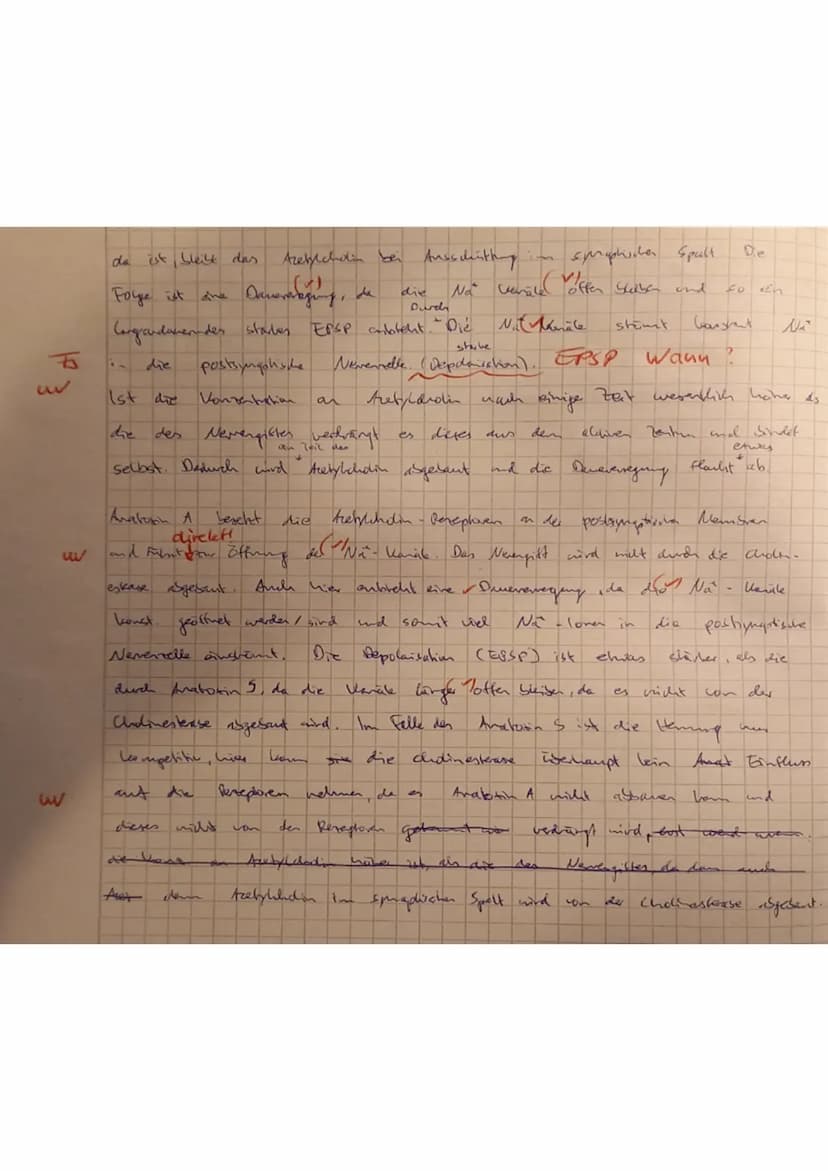 da ist, bleibt das Acetylcholin bei Ausschüttung im synaptischen Spalt Die
Folge ist eine Dauererregung, da die Na⁺ Kanäle offen bleiben und so ein
(✓) (✓)
langandauerndes starkes EPSP entsteht. Durch Die Na⁺ Kanäle strömt konstant Na⁺
in die postsynaptische Nervenzelle. (starke Depolarisation). EPSP Wann?
Ist die Konzentration an Acetylcholin nach einige Zeit wesentlich höher als
die des Nervengiftes verdrängt es dieses aus dem aktiven Zentrum und bindet
selbst. Dadurch wird ein Teil des Acetylcholin abgebaut und die Dauererregung flacht etwas ab
Anatoxin A besetzt die Acetylcholin-Rezeptoren an der postsynaptischen Membran
direkt!
und führt zur Öffnung der Na⁺-Kanäle. Das Nervengift wird nicht durch die Cholin-
esterase abgebaut. Auch hier entsteht eine Dauererregung, da die Na⁺-Kanäle
konst. geöffnet werden/sind und somit viel Na⁺-Ionen in die postsynaptische
Nervenzelle einströmt. Die Depolarisation (EPSP) ist etwas stärker, als die
durch Anatoxin S, da die Kanäle länger offen bleiben, da es nicht von der
Cholinesterase abgebaut wird. Im Falle des Anatoxin S ist die Hemmung nur
kompetitiv, hier kann die Cholinesterase überhaupt kein Einfluss
auf die Rezeptoren nehmen, da es Anatoxin A nicht abbauen kann und
dieses nicht von den Rezeptoren verdrängt wird,
die Konz. an Acetylcholin höher ist, als die des Nervengiftes, da dann auch
denn Acetylcholin im synaptischen Spalt wird von der Cholinesterase abgebaut.